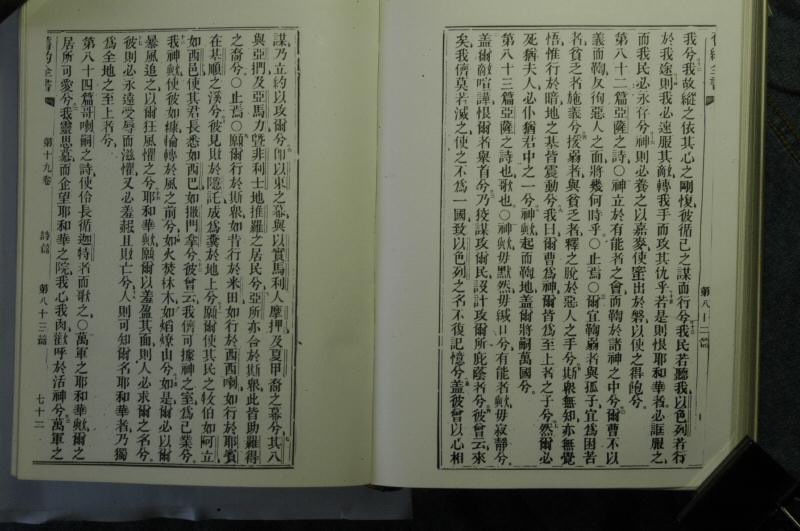 舊約全書
我兮我故縱之依其心之剛愎彼循己之謀而行兮我民若聽我以色列若行
於我途則我必速服其敵轉我手而攻其仇乎若是則恨耶和華者必誑服之
而我民必永存兮神則必養之以嘉麥使蜜出於磐以使之得飽兮
第八十二篇亞薩之詩〇神立於有能者之會而鞫於諸神之中兮爾曹不以
義而鞫反徇惡人之面將幾何時乎〇止焉〇爾宜鞫弱者與孤子宜爲困苦
者貧乏者施義兮援弱者與貧乏者釋之脫於惡人之手兮斯衆無知亦無覺
悟惟行於暗地之基皆震動兮我曰爾曹爲神爾皆爲至上者之子兮然爾必
死猶夫人必仆猶君中之一兮神歟起而鞫地蓋爾將嗣萬國兮
第八十三篇亞薩之詩也歌也〇神歟毋默然毋緘口兮有能者歟毋寂靜兮
蓋爾敵喧譁恨爾者舉首兮乃狡謀攻爾民設計攻爾所庇蔭者兮彼曾云來
矣我儕莫若滅之使之不爲一國致以色列之名不復記憶兮蓋彼曾以心相
第八十二篇
謀乃立約以攻爾兮卽以東之幕與以實馬利人摩押及夏甲裔之幕兮其八
與亞捫及亞馬力曁非利士地推羅之居民兮亞所亦合於斯衆此皆助羅得
之裔兮〇止焉〇願爾行於斯衆如昔行於米田如行於西西喇如行於耶賓
在基順之溪兮彼見敗於隱託成爲糞於地上兮願爾使其民之牧伯如阿立
如西邑使其君長悉如西巴如撒門拿兮彼曾云我儕可據神之室爲己業兮
我神歟使彼如糠輪轉於風之前兮如火焚林木如焰燎山兮如是爾必以爾
暴風追之以爾狂風懼之兮耶和華歟願爾以羞盈其面則人必求爾之名兮
彼則必永遠受辱而滋懼又必羞赧且敗亡兮人則可知爾名耶和華者乃獨
爲全地之至上者兮
第八十四篇哥喇嗣之詩使伶長循迦特者而歌之〇萬軍之耶和華歟爾之
居所可愛兮我靈思慕而企望耶和華之院我心我肉歡呼於活神兮萬軍之
舊約全書
第十九卷
詩篇
第八十三篇
七十二